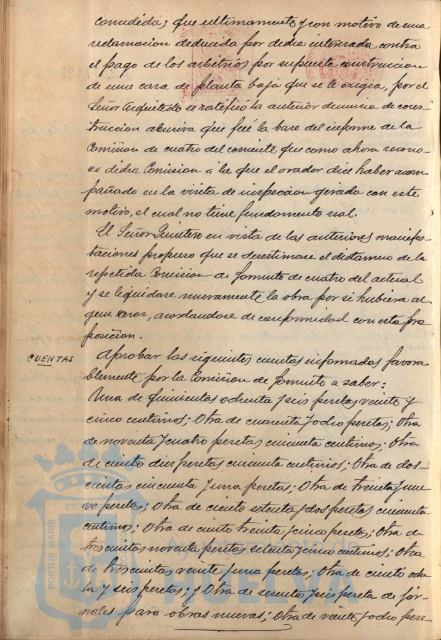 concedida; que ultimamente y con motivo de una
reclamacion deducida por dicha interesada contra
el pago de los arbitrios por supuesta construccion
de una casa de planta baja que se le exigia, por el
Señor Arquitecto se ratificó la anterior denuncia de cons
truccion abusiva que fué la base del informe de la
Comision de cuatro del corriente que como ahora recono
ce dicha Comision á la que el orador dice haber acom
pañado en la visita de inspeccion girada con este
motivo, el cual no tiene fundamento real.
El Señor Quintero en vista de las anteriores manifes
taciones propuso que se desestimase el dictamen de la
repetida Comision de Fomento de cuatro del actual
y se liquidase nuevamente la obra por si hubiera al
gun error, acordandose de conformidad con esta pro
posicion.
CUENTAS
Aprobar las siguientes cuentas informadas favora
blemente por la Comision de Fomento a saber:
Una de quinientas ochenta y seis pesetas veinte y
cinco centimos; Otra de cuarenta y ocho pesetas; Otra
de noventa y cuatro pesetas cincuenta centimos; Otra
de ciento diez pesetas cincuenta centimos; Otra de dos
cientas cincuenta y una pesetas; Otra de treinta y nue
ve pesetas; Otra de ciento setenta y dos pesetas cincuenta
centimos; Otra de ciento treinta y cinco pesetas; Otra de
trescientas noventa pesetas setenta y cinco centimos; Otra
de trescientas veinte y una pesetas; Otra de ciento ochen
ta y seis pesetas; y Otra de sesenta y seis pesetas de jor
nales para obras nuevas; Otra de veinte y ocho pese
PORTUS MARIS